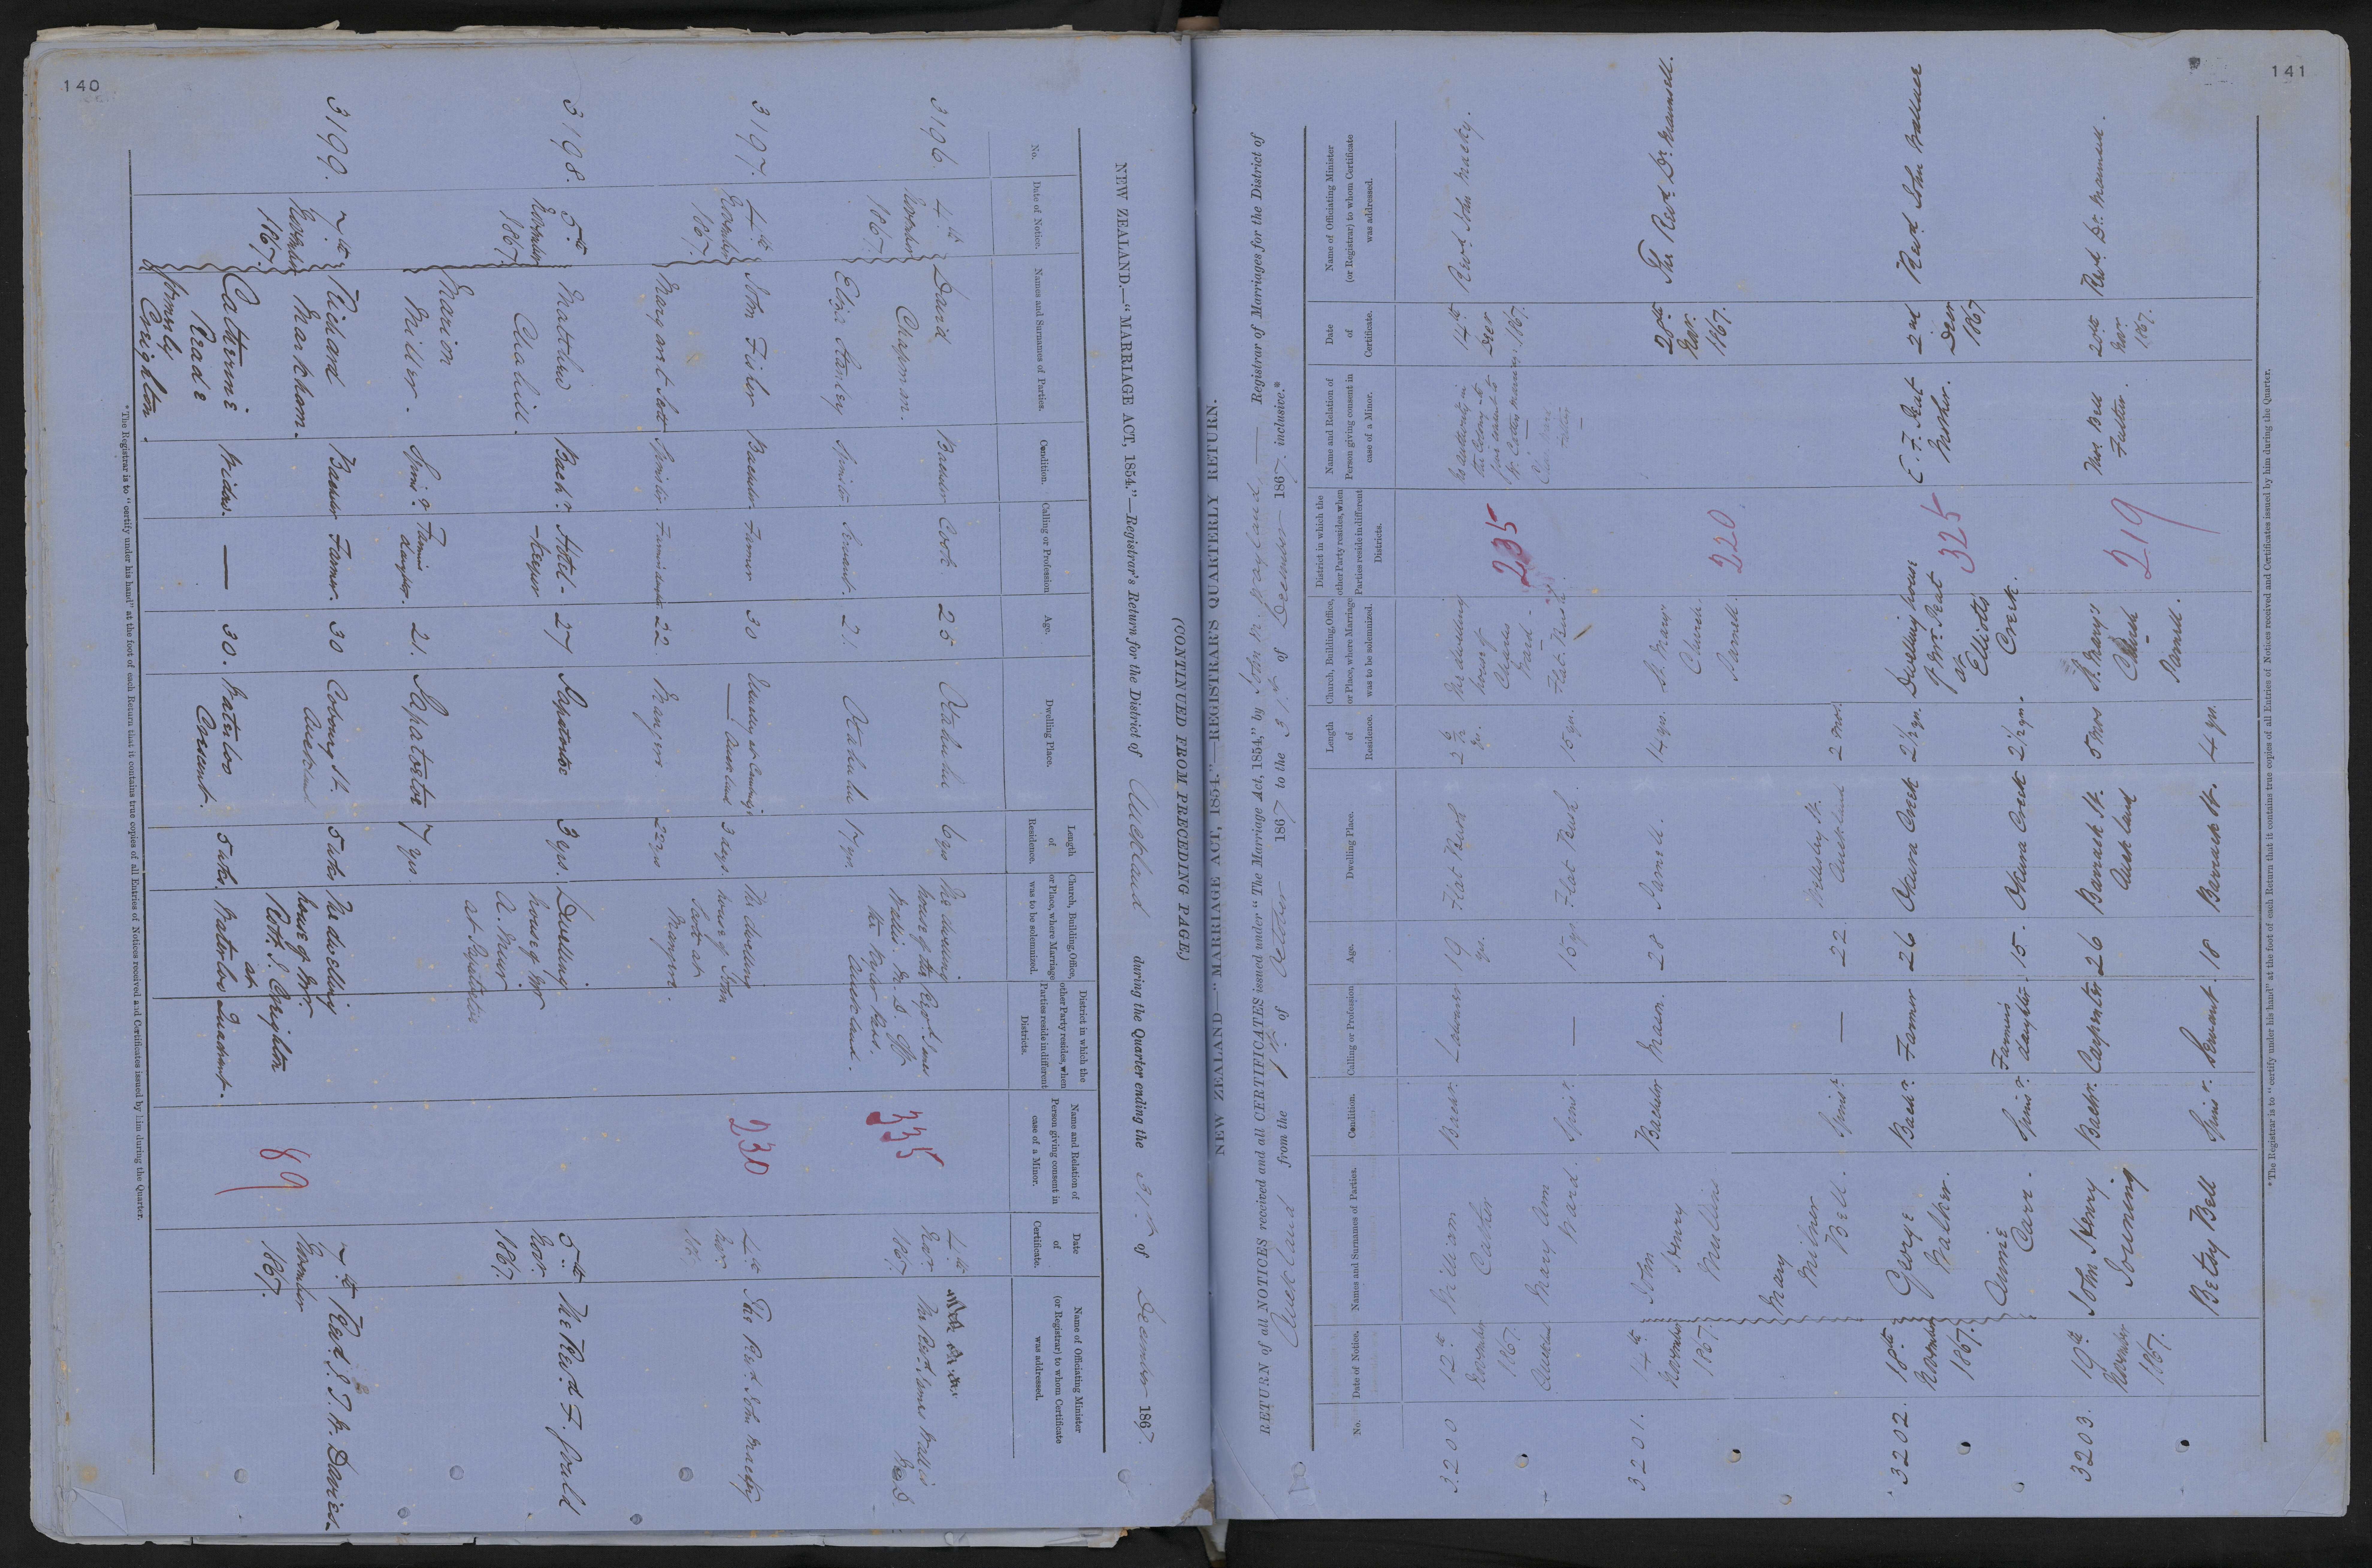 140
NEW ZEALAND.—"MARRIAGE ACT, 1854."—Registrar's Return for the District of Auckland during the Quarter ending the 31st of December 1867.
(CONTINUED FROM PRECEDING PAGE.)
No.
Date of Notice.
Names and Surnames of Parties.
Condition.
Calling or Profession
Age.
Dwelling Place.
Length of Residence.
Church, Building, Office, or Place, where Marriage was to be solemnized.
District in which the other Party resides, when Parties reside in different Districts.
Name and Relation of Person giving consent in case of a Minor.
Date of Certificate.
Name of Officiating Minister (or Registrar) to whom Certificate was addressed.
3196.
4th November 1867.
David Chapman.
Bachelor
Cook.
25
Otahuhu
6 yrs
The dwelling house of the Revd. James Wallis
Auckland.
335
4th Novr. 1867.
The Revd. James Wallis
Eliza Hanley
Spinster
Servant.
21
Otahuhu
17 yrs.
3197.
4th November 1867.
John Fisher
Bachelor.
Farmer
30
Auckland
3 days.
The dwelling house of John Scott at Mangere.
230
4th Novr. 1867
The Revd. John Macky
Margaret Scott
Spinster.
22.
Mangere.
22 yrs
3198.
5th November 1867.
Matthew Clahill.
Bachr.
Hotel-keeper
27
Papatoitoi
3 yrs.
Dwelling house of Mr A. Muir at Papatoitoi
5th Novr. 1867.
The Revd. F. Gould
Marion Miller.
Spinr.
Farmer's daughter.
21.
Papatoitoi
7 yrs.
3199.
7th November 1867.
Richard Markham.
Bachelor
Farmer.
30
Coburg St. Auckland
5 wks
The dwelling house of Mr. Robt. J. Creighton at Waterloo Quadrant.
89
7th November 1867.
Revd. J. T. H. Davies.
Catherine Reade formerly Creighton.
Widow.
—
30.
Waterloo Crescent.
5 wks.
*The Registrar is to "certify under his hand" at the foot of each Return that it contains true copies of all Entries of Notices received and Certificates issued by him during the Quarter.
141
NEW ZEALAND—"MARRIAGE ACT, 1854."—REGISTRAR'S QUARTERLY RETURN.
RETURN of all NOTICES received and all CERTIFICATES issued under "The Marriage Act, 1854," by John M. Wayland — Registrar of Marriages for the District of
Auckland from the 1st of October 1867 to the 31st of December 1867. inclusive.*
No.
Date of Notice.
Names and Surnames of Parties.
Condition.
Calling or Profession
Age.
Dwelling Place.
Length of Residence.
Church, Building, Office, or Place, where Marriage was to be solemnized.
District in which the other Party resides, when Parties reside in different Districts.
Name and Relation of Person giving consent in case of a Minor.
Date of Certificate.
Name of Officiating Minister (or Registrar) to whom Certificate was addressed.
3200
12th November 1867.
William
Labourer
19 yrs.
Flat Bush
The dwelling house of Charles Ward. Flat Bush.
235
No authority in the Colony to give consent to
14th Decr 1867.
Revd. John Macky.
Auckland
Mary Ann Ward.
Spinr.
—
15 yrs
Flat Bush.
15 yrs.
3201.
14th November 1867.
John Henry Mullins
Bachelor
Mason.
28
Parnell.
14 yrs.
St. Mary's Church. Parnell.
220.
28th Novr. 1867.
The Revd. Dr. Maunsell.
Mary Milner Bell.
Spinr.
—
22.
Wellesley St. Auckland
2 mos.
3202.
18th November 1867.
George Walker.
Bachr.
Farmer
26
Okura Creek
2½ yrs.
Dwelling house of Mr. Peat at Elliotts Creek.
325
E. F. Peat Mother.
2nd Decr 1867
Revd. John Wallace
Annie Carr.
Spinr.
Farmers daughter
15.
Okura Creek
2½ yrs.
3203.
19th November 1867.
John Henry
Bachr.
Carpenter
26
Barrack St. Auckland
5 mos
St. Mary's Church Parnell.
219
Thos Bell Father.
20th Novr. 1867.
Revd. Dr. Maunsell.
Betsy Bell
Spinr.
Servant.
18
Barrack St.
4 yrs.
*The Registrar is to "certify under his hand" at the foot of each Return that it contains true copies of all Entries of Notices received and Certificates issued by him during the Quarter.